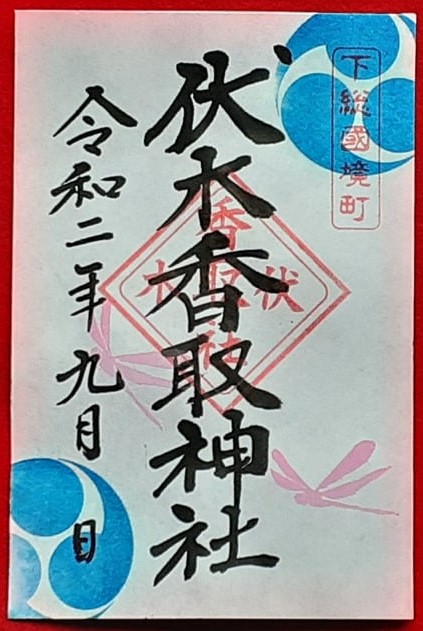 下総國境町
伏木香取神社
伏木
香取社
令和二年九月 日